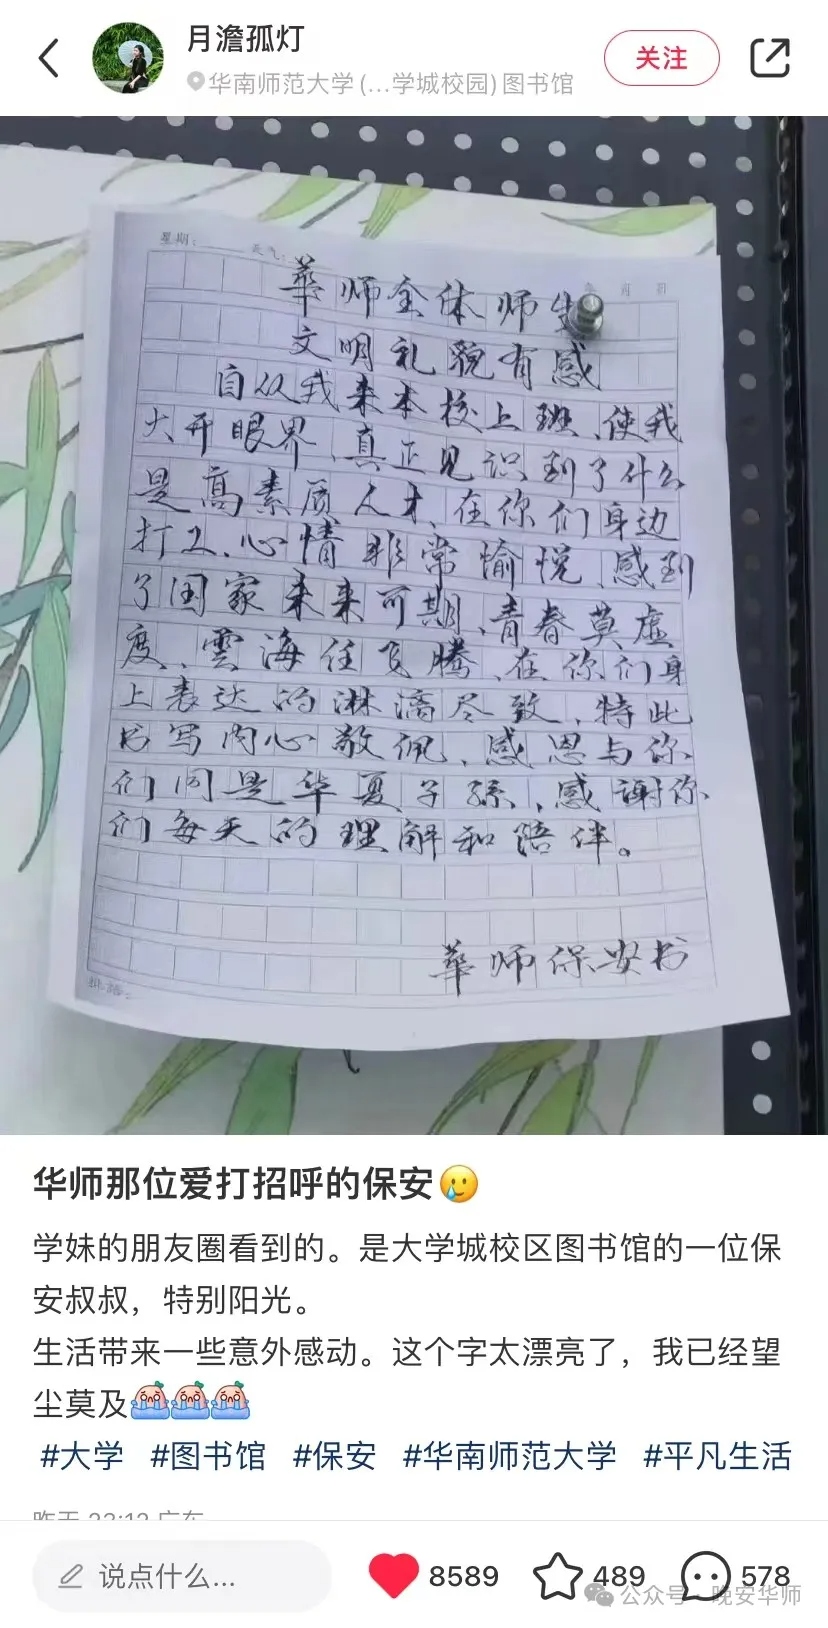 月澹孤灯
华南师范大学(...学城校园)图书馆
关注
星期：
天气：
年 月 日
華师全体师生
文明礼貌有感
自从我来本校上班、使我
大开眼界、真正见识到了什么
是高素质人才、在你们身边
打工、心情非常愉悦、感到
了国家未来可期、青春莫虚
度、雲海任飞腾、在你们身
上表达的淋漓尽致、特此
书写内心敬佩、感恩与你
们同是华夏子孫、感谢你
们每天的理解和陪伴。
華师保安书
华师那位爱打招呼的保安🥲
学妹的朋友圈看到的。是大学城校区图书馆的一位保
安叔叔，特别阳光。
生活带来一些意外感动。这个字太漂亮了，我已经望
尘莫及
#大学 #图书馆 #保安 #华南师范大学 #平凡生活
昨天 23:12 广东
说点什么...
8589
489
578
公众号 · 晚安华师